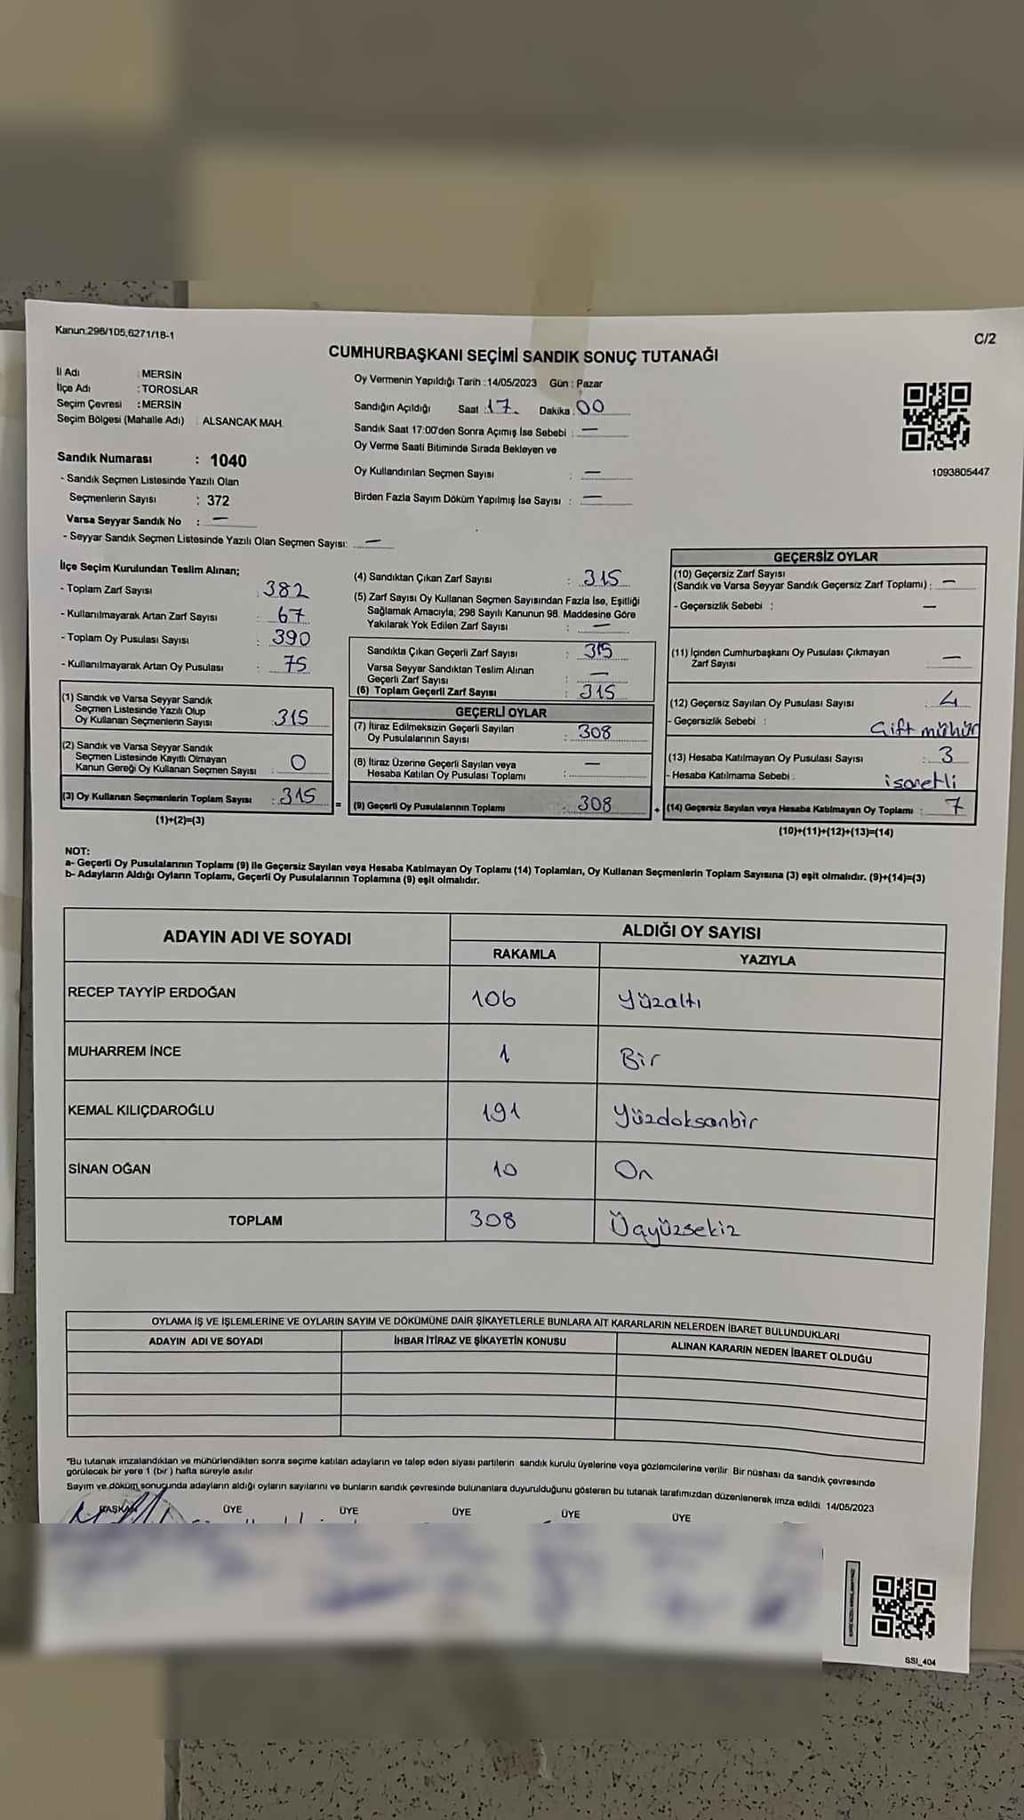 Kanun:298/105,6271/18-1
C/2
CUMHURBAŞKANI SEÇİMİ SANDIK SONUÇ TUTANAĞI
İl Adı : MERSİN
İlçe Adı : TOROSLAR
Seçim Çevresi : MERSİN
Seçim Bölgesi (Mahalle Adı) : ALSANCAK MAH.
Sandık Numarası : 1040
- Sandık Seçmen Listesinde Yazılı Olan
Seçmenlerin Sayısı : 372
Varsa Seyyar Sandık No : —
- Seyyar Sandık Seçmen Listesinde Yazılı Olan Seçmen Sayısı: —
Oy Vermenin Yapıldığı Tarih : 14/05/2023 Gün : Pazar
Sandığın Açıldığı Saat : 17 Dakika : 00
Sandık Saat 17:00'den Sonra Açımış İse Sebebi : —
Oy Verme Saati Bitiminde Sırada Bekleyen ve
Oy Kullandırılan Seçmen Sayısı : —
Birden Fazla Sayım Döküm Yapılmış İse Sayısı : —
1093805447
İlçe Seçim Kurulundan Teslim Alınan;
- Toplam Zarf Sayısı : 382
- Kullanılmayarak Artan Zarf Sayısı : 67
- Toplam Oy Pusulası Sayısı : 390
- Kullanılmayarak Artan Oy Pusulası : 75
(1) Sandık ve Varsa Seyyar Sandık
Seçmen Listesinde Yazılı Olup
Oy Kullanan Seçmenlerin Sayısı : 315
(2) Sandık ve Varsa Seyyar Sandık
Seçmen Listesinde Kayıtlı Olmayan
Kanun Gereği Oy Kullanan Seçmen Sayısı : 0
(3) Oy Kullanan Seçmenlerin Toplam Sayısı : 315
(1)+(2)=(3)
(4) Sandıktan Çıkan Zarf Sayısı : 315
(5) Zarf Sayısı Oy Kullanan Seçmen Sayısından Fazla İse, Eşitliği
Sağlamak Amacıyla, 298 Sayılı Kanunun 98. Maddesine Göre
Yakılarak Yok Edilen Zarf Sayısı : —
Sandıkta Çıkan Geçerli Zarf Sayısı : 315
Varsa Seyyar Sandıktan Teslim Alınan
Geçerli Zarf Sayısı : —
(6) Toplam Geçerli Zarf Sayısı : 315
GEÇERLİ OYLAR
(7) İtiraz Edilmeksizin Geçerli Sayılan
Oy Pusulalarının Sayısı : 308
(8) İtiraz Üzerine Geçerli Sayılan veya
Hesaba Katılan Oy Pusulası Toplamı : —
= (9) Geçerli Oy Pusulalarının Toplamı : 308
GEÇERSİZ OYLAR
(10) Geçersiz Zarf Sayısı
(Sandık ve Varsa Seyyar Sandık Geçersiz Zarf Toplamı) : —
- Geçersizlik Sebebi : —
(11) İçinden Cumhurbaşkanı Oy Pusulası Çıkmayan
Zarf Sayısı : —
(12) Geçersiz Sayılan Oy Pusulası Sayısı : 4
- Geçersizlik Sebebi : Çift mühür
(13) Hesaba Katılmayan Oy Pusulası Sayısı : 3
- Hesaba Katılmama Sebebi : işaretli
+ (14) Geçersiz Sayılan veya Hesaba Katılmayan Oy Toplamı : 7
(10)+(11)+(12)+(13)=(14)
NOT:
a- Geçerli Oy Pusulalarının Toplamı (9) ile Geçersiz Sayılan veya Hesaba Katılmayan Oy Toplamı (14) Toplamları, Oy Kullanan Seçmenlerin Toplam Sayısına (3) eşit olmalıdır. (9)+(14)=(3)
b- Adayların Aldığı Oyların Toplamı, Geçerli Oy Pusulalarının Toplamına (9) eşit olmalıdır.
ADAYIN ADI VE SOYADI
ALDIĞI OY SAYISI
RAKAMLA YAZIYLA
RECEP TAYYİP ERDOĞAN 106 Yüzaltı
MUHARREM İNCE 1 Bir
KEMAL KILIÇDAROĞLU 191 Yüzdoksanbir
SİNAN OĞAN 10 On
TOPLAM 308 Üçyüzsekiz
OYLAMA İŞ VE İŞLEMLERİNE VE OYLARIN SAYIM VE DÖKÜMÜNE DAİR ŞİKAYETLERLE BUNLARA AİT KARARLARIN NELERDEN İBARET BULUNDUKLARI
ADAYIN ADI VE SOYADI İHBAR İTİRAZ VE ŞİKAYETİN KONUSU ALINAN KARARIN NEDEN İBARET OLDUĞU
"Bu tutanak imzalandıktan ve mühürlendikten sonra seçime katılan adayların ve talep eden siyasi partilerin sandık kurulu üyelerine veya gözlemcilerine verilir Bir nüshası da sandık çevresinde
görülecek bir yere 1 (bir) hafta süreyle asılır
Sayım ve döküm sonucunda adayların aldığı oyların sayılarını ve bunların sandık çevresinde bulunanlara duyurulduğunu gösteren bu tutanak tarafımızdan düzenlenerek imza edildi. 14/05/2023
BAŞKAN ÜYE ÜYE ÜYE ÜYE ÜYE
SSI_404